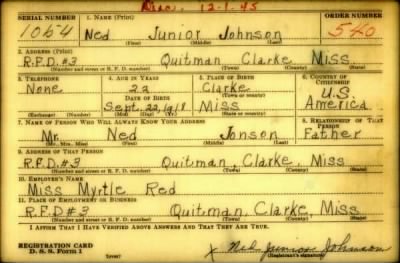 Disc. 12-1-45
SERIAL NUMBER 1. NAME (Print) ORDER NUMBER
1064 Ned Junior Johnson 540
(First) (Middle) (Last)
2. ADDRESS (Print)
R.F.D. #3 Quitman Clarke Miss
(Number and street or R. F. D. number) (Town) (County) (State)
3. TELEPHONE 4. AGE IN YEARS 5. PLACE OF BIRTH 6. COUNTRY OF CITIZENSHIP
None 22 Clarke U.S
DATE OF BIRTH (Town or county)
Sept. 22, 1918 Miss America
(Exchange) (Number) (Mo.) (Day) (Yr.) (State or country)
7. NAME OF PERSON WHO WILL ALWAYS KNOW YOUR ADDRESS 8. RELATIONSHIP OF THAT PERSON
Mr. Ned Jonson Father
(Mr., Mrs., Miss) (First) (Middle) (Last)
9. ADDRESS OF THAT PERSON
R.F.D. #3 Quitman, Clarke, Miss
(Number and street or R. F. D. number) (Town) (County) (State)
10. EMPLOYER'S NAME
Miss Myrtle Red
11. PLACE OF EMPLOYMENT OR BUSINESS
R.F.D #3 Quitman, Clarke, Miss
(Number and street or R. F. D. number) (Town) (County) (State)
I AFFIRM THAT I HAVE VERIFIED ABOVE ANSWERS AND THAT THEY ARE TRUE.
REGISTRATION CARD
D. S. S. FORM 1 x Ned Junior Johnson
(over) (Registrant's signature)